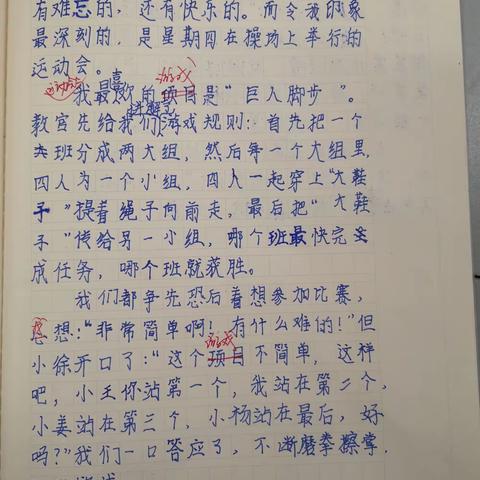 有难忘的，还有快乐的。而令我印象
最深刻的，是星期四在操场上举行的
运动会。
运动会 喜 游戏
我最欢的项目是“巨人脚步”。
讲解了
教官先给我们游戏规则：首先把一个
大班分成两大组，然后每一个大组里，
四人为一个小组，四人一起穿上“大鞋
子”提着绳子向前走，最后把“大鞋
子”传给另一小组，哪个班最快完全
成任务，哪个班就获胜。
我们都争先恐后着想参加比赛，
想：“非常简单啊！有什么难的！”但
游戏
小徐开口了：“这个项目不简单，这样
吧，小王你站第一个，我站在第二个，
小姜站在第三个，小杨站在最后，好
吗？”我们一口答应了，不断磨拳擦掌，